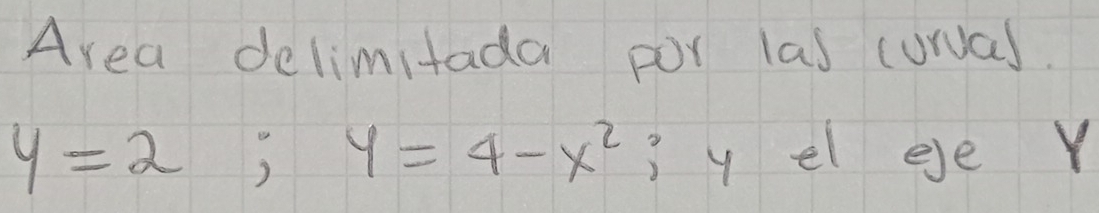 Area delimitada por las curvas.
y = 2 ; y = 4 - x² ; y el eje Y